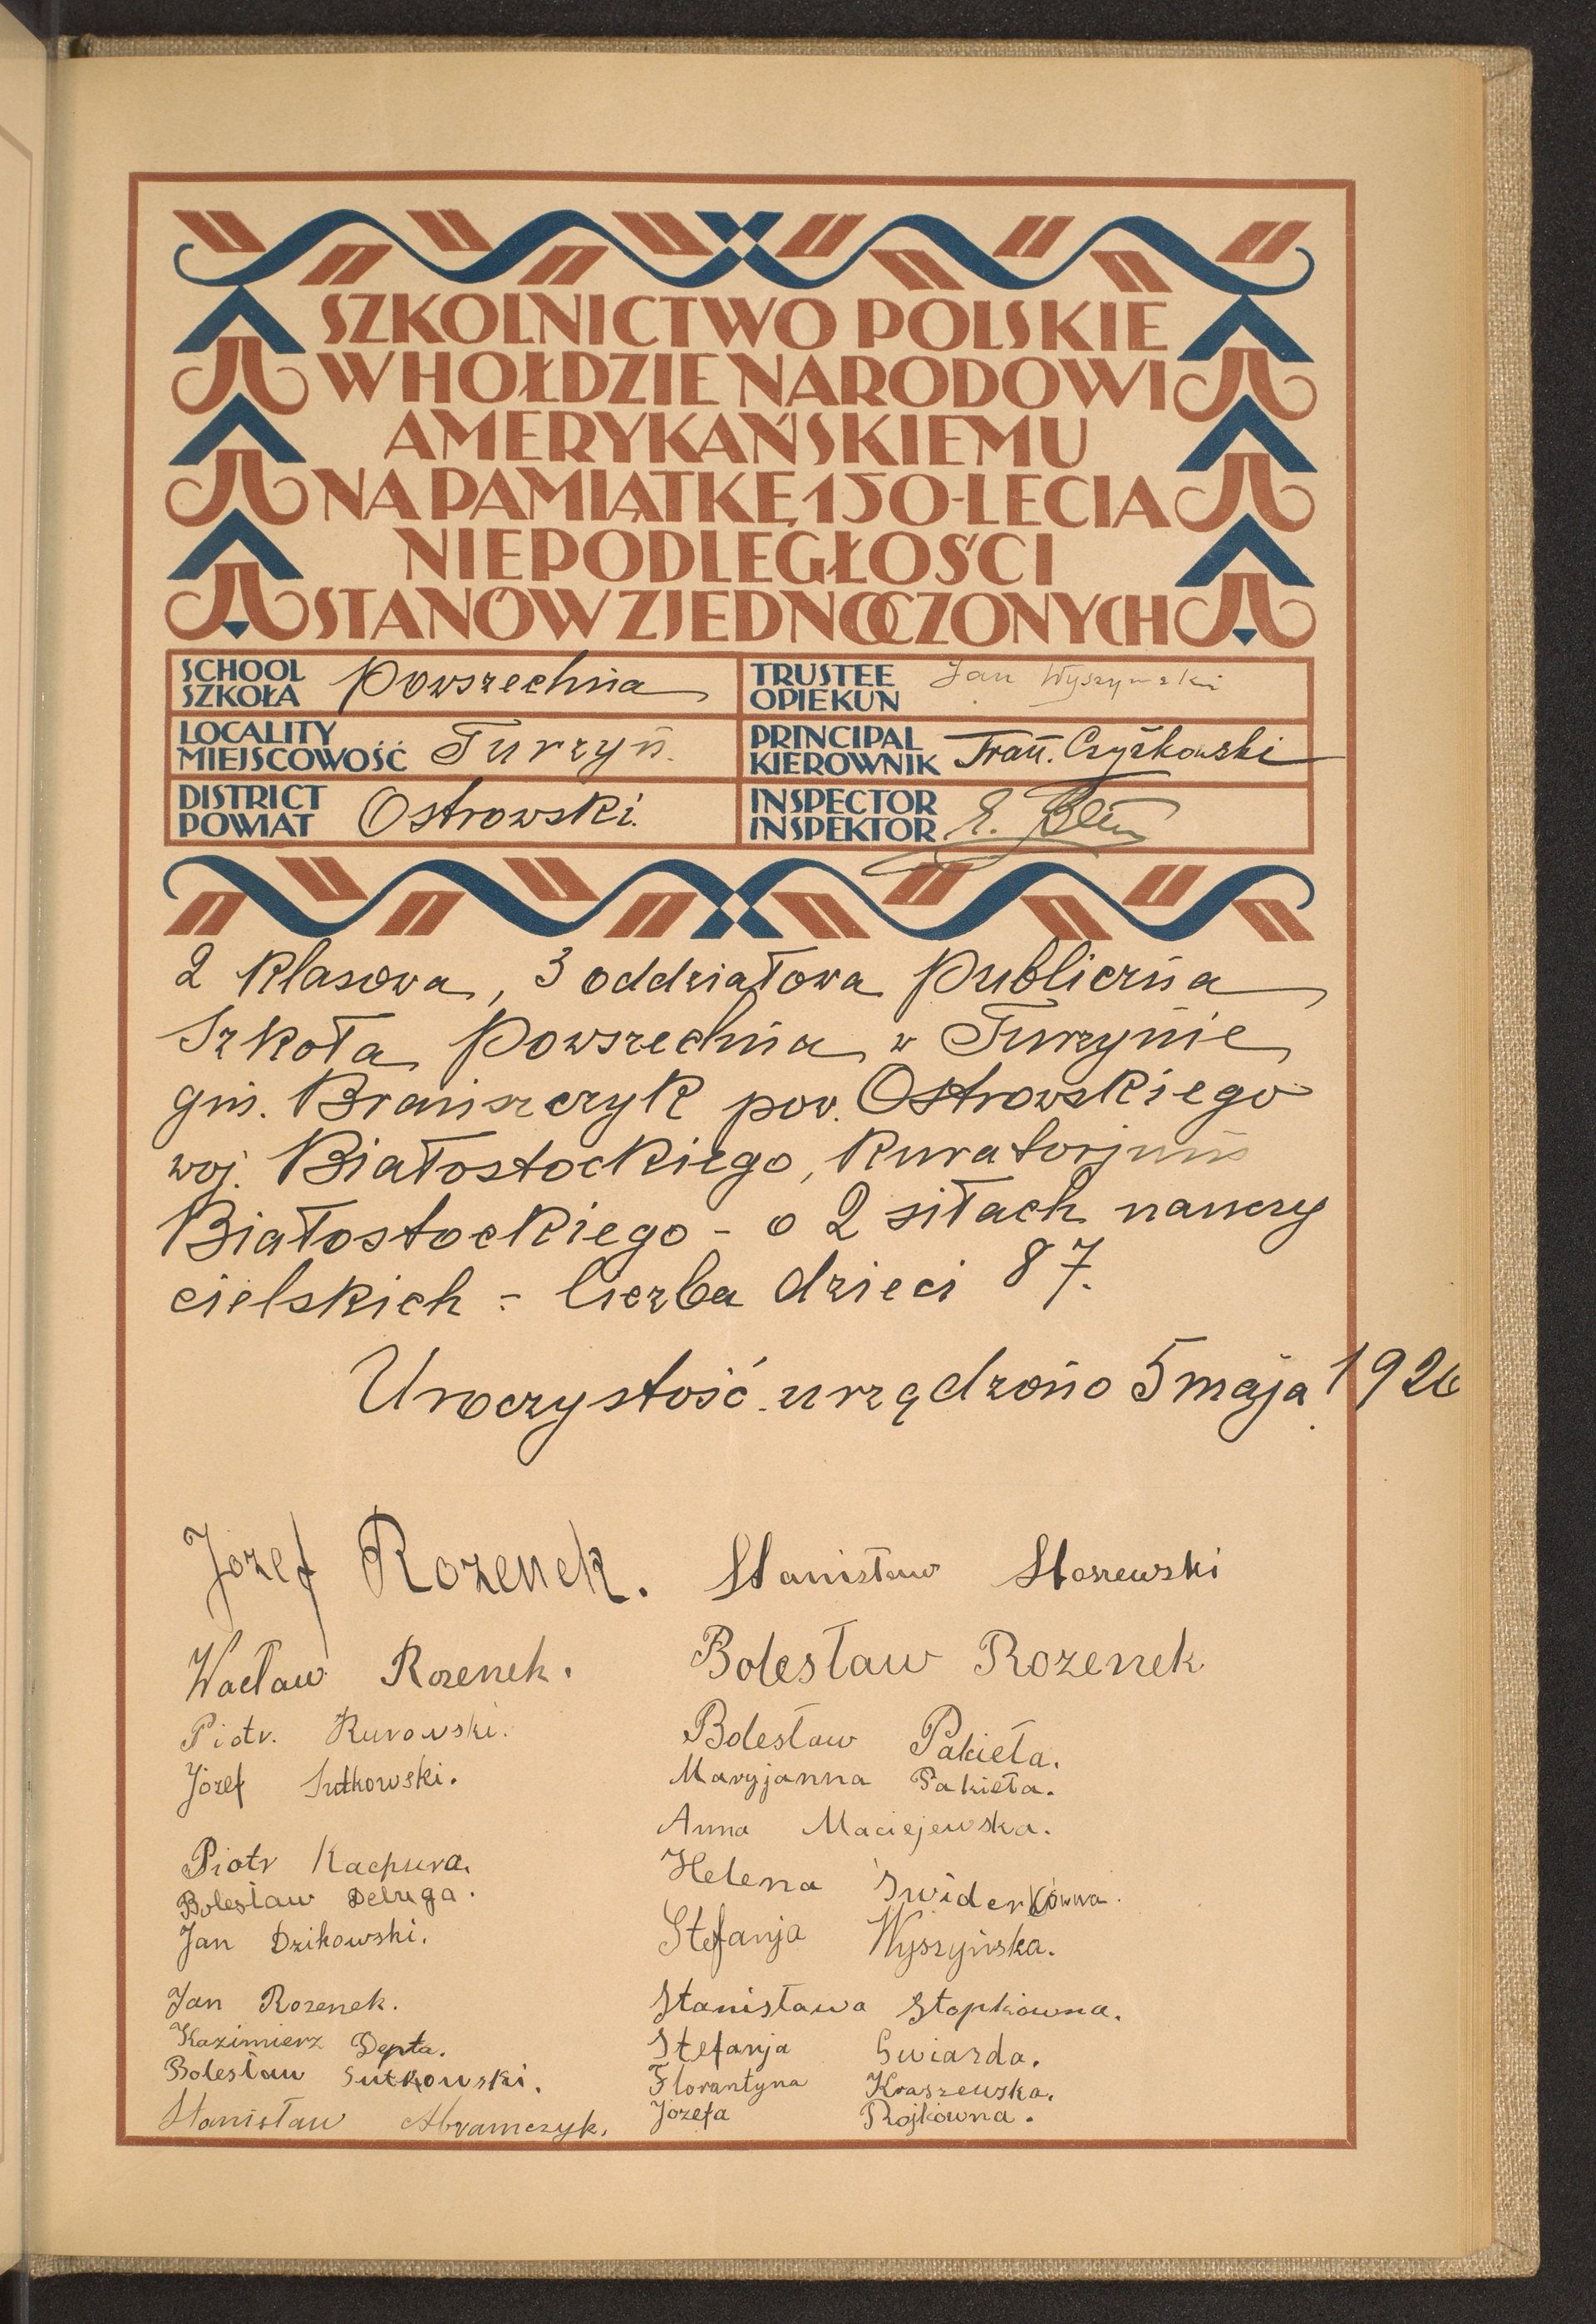 SZKOLNICTWO POLSKIE
W HOŁDZIE NARODOWI
AMERYKAŃSKIEMU
NA PAMIĄTKĘ 150-LECIA
NIEPODLEGŁOŚCI
STANÓW ZJEDNOCZONYCH
SCHOOL
SZKOŁA
Powszechna
TRUSTEE
OPIEKUN
Jan Wyszyński
LOCALITY
MIEJSCOWOŚĆ
Turzyn.
PRINCIPAL
KIEROWNIK
Fran. Czyżkowski
DISTRICT
POWIAT
Ostrowski.
INSPECTOR
INSPEKTOR
E.
2 klasowa, 3 oddziałowa publiczna
Szkoła Powszechna w Turzynie
gm. Brańszczyk pow. Ostrowskiego
woj. Białostockiego, Kuratorjum
Białostockiego - o 2 siłach nauczy
cielskich - liczba dzieci 87.
Uroczystość urządzono 5 maja 1926
Józef Rozenek.
Stanisław Staszewski
Wacław Rozenek.
Bolesław Rozenek
Piotr. Kurowski.
Bolesław Pakieła.
Józef Sutkowski.
Maryjanna Pakieła.
Anna Maciejewska.
Piotr Kachura.
Helena Świderkówna.
Bolesław Deluga.
Jan Dzikowski.
Stefanja Wyszyńska.
Jan Rozenek.
Stanisława Stopkówna.
Kazimierz Depta.
Stefanja Gwiazda.
Bolesław Sutkowski.
Florantyna Kraszewska.
Stanisław Abramczyk.
Józefa Rojkówna.